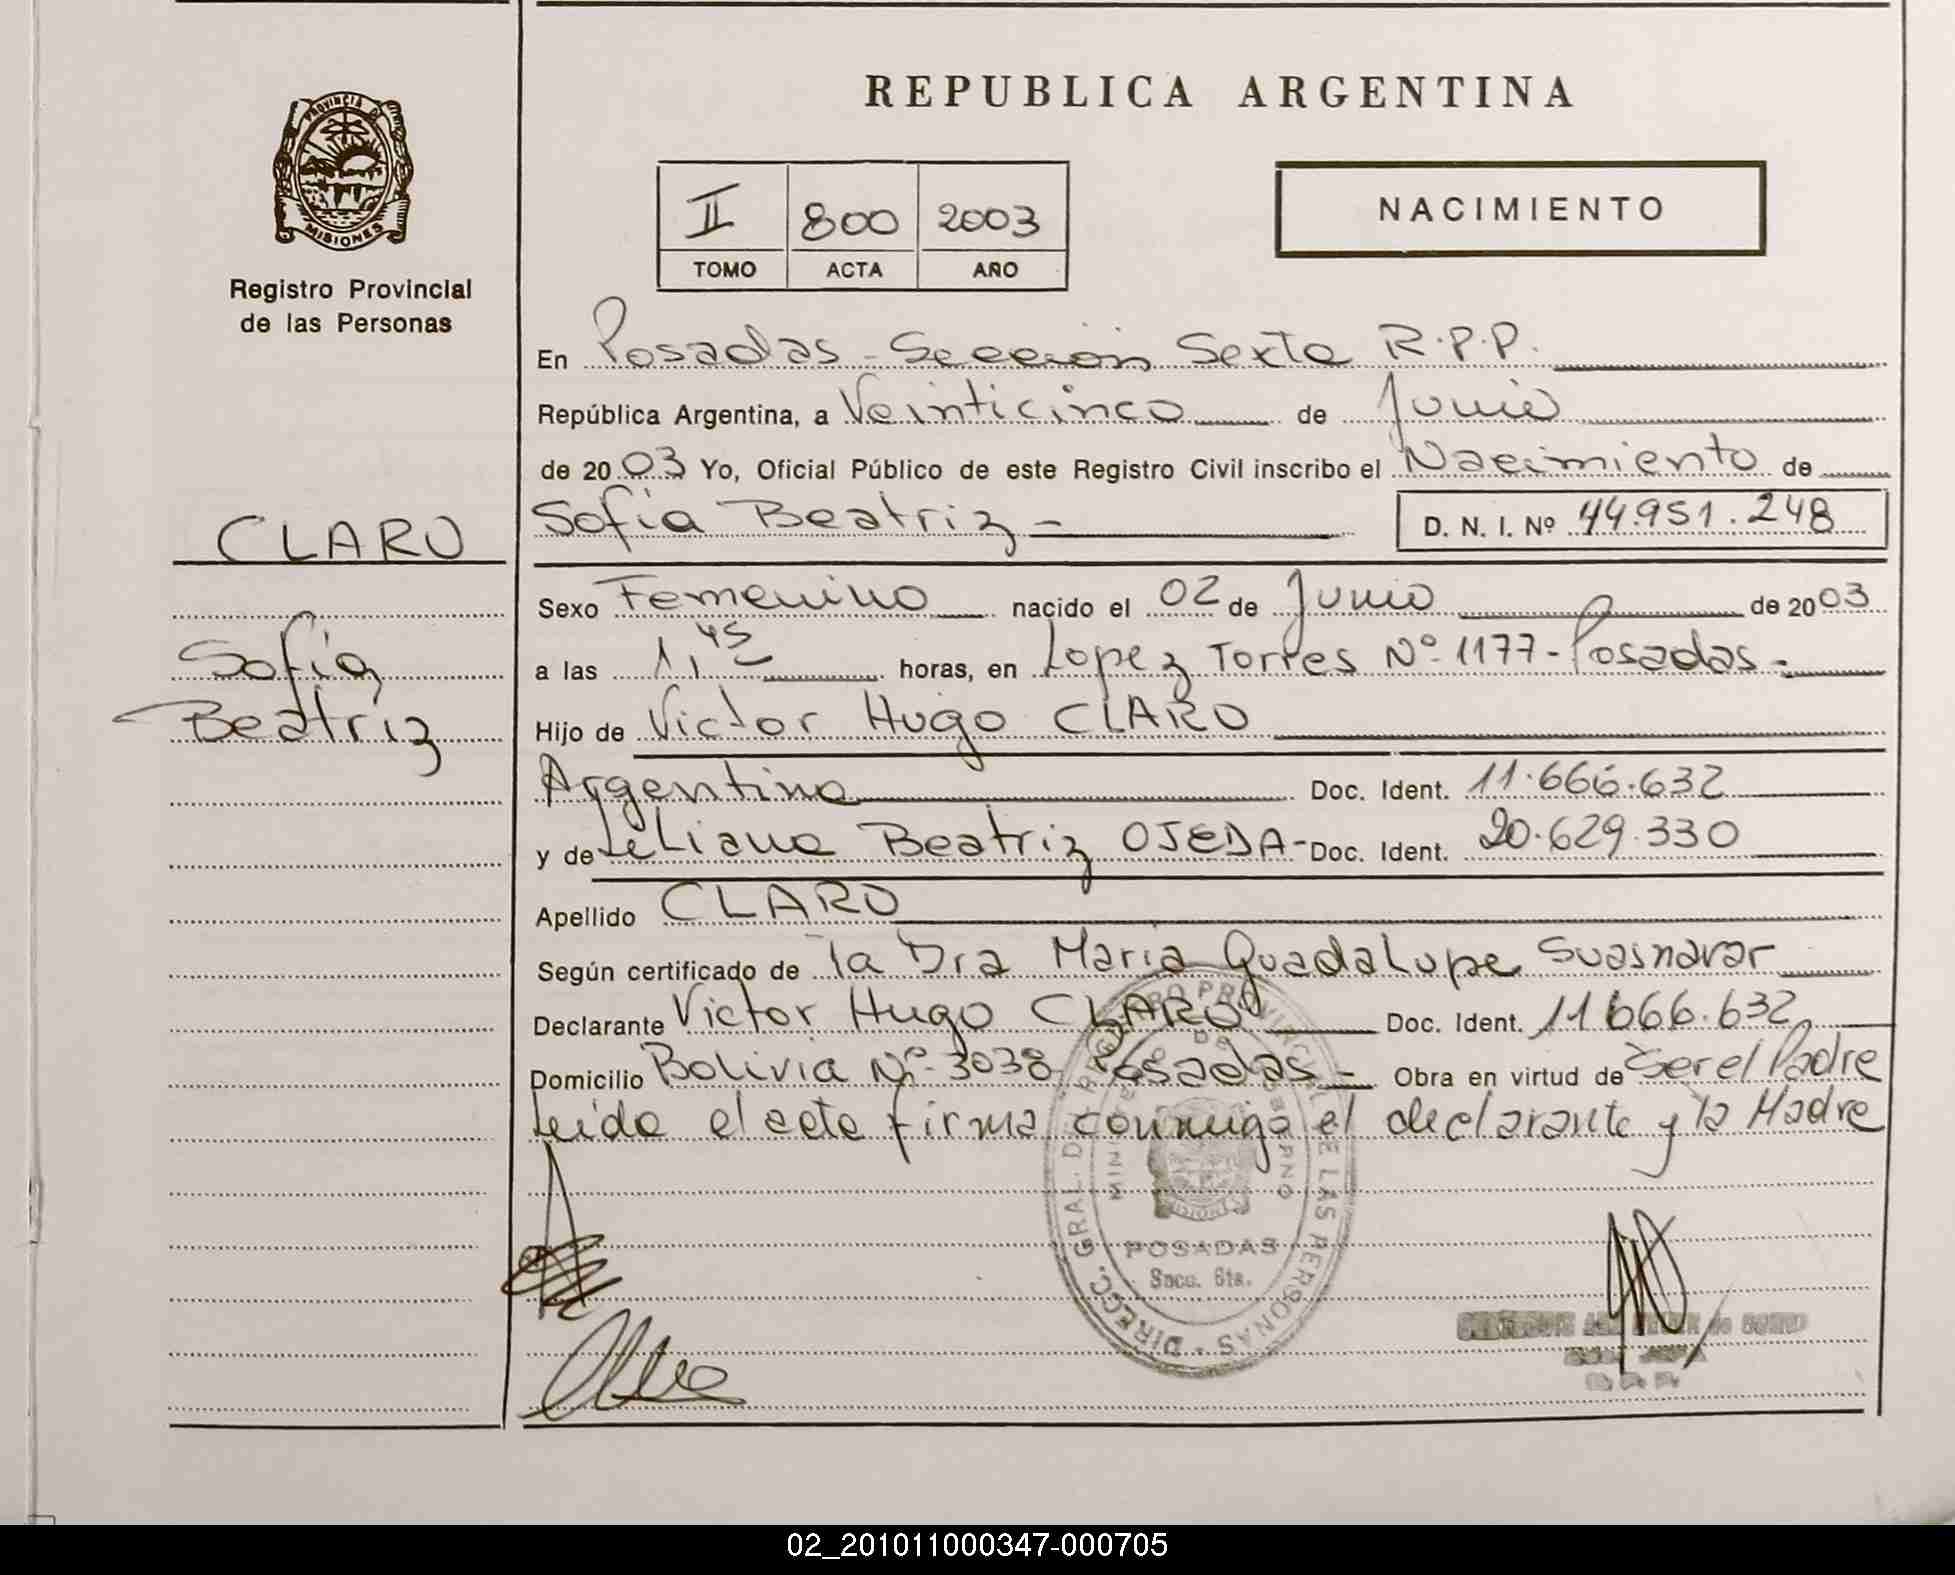 REPUBLICA ARGENTINA
PROVINCIA DE
MISIONES
Registro Provincial
de las Personas
II 800 2003
TOMO ACTA AÑO
NACIMIENTO
En Posadas - Seccion Sexta R.P.P.
República Argentina, a Veinticinco de Junio
de 2003 Yo, Oficial Público de este Registro Civil inscribo el Nacimiento de
CLARO
Sofía Beatriz - D. N. I. Nº 44.951.248
Sexo Femenino nacido el 02 de Junio de 2003
Sofía
a las 1,45 horas, en Lopez Torres Nº 1177 - Posadas -
Beatriz
Hijo de Victor Hugo CLARO
Argentina Doc. Ident. 11.666.632
y de Liliana Beatriz OJEDA - Doc. Ident. 20.629.330
Apellido CLARO
Según certificado de la Dra Maria Guadalupe Suasnavar
Declarante Victor Hugo CLARO Doc. Ident. 11666.632
Domicilio Bolivia Nº 3038 Posadas - Obra en virtud de Ser el Padre
Leida el acta firma conmigo el declarante y la Madre
DIRECC. GRAL. DE REGISTRO PROVINCIAL DE LAS PERSONAS
MINISTERIO DE GOBIERNO
MISIONES
POSADAS
Secc. 6ta.
02_201011000347-000705